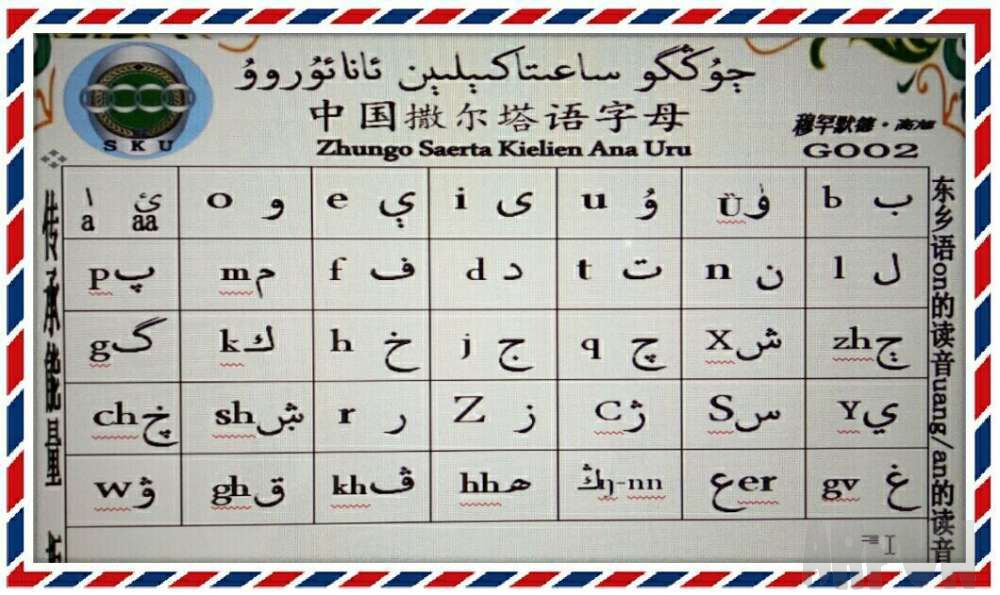 چۇڭگو ساعىتاكىيلىيىن ئانائۇروۇ
中国撒尔塔语字母
Zhungo Saerta Kielien Ana Uru
SKU
穆罕默德·高旭
G002
ا a ئ aa
o و
e ې
i ى
u ۇ
Ü ۈ
b ب
p پ
m م
f ف
d د
t ت
n ن
l ل
g گ
k ك
h خ
j ج
q چ
X ش
zh
ch
sh ښ
r ر
Z ز
C ژ
S س
Y ي
w ۋ
gh ق
kh ڤ
hh ھ
ڭ ŋ-nn
ع er
gv غ
传承能量
东乡语on的读音uang/an的读音